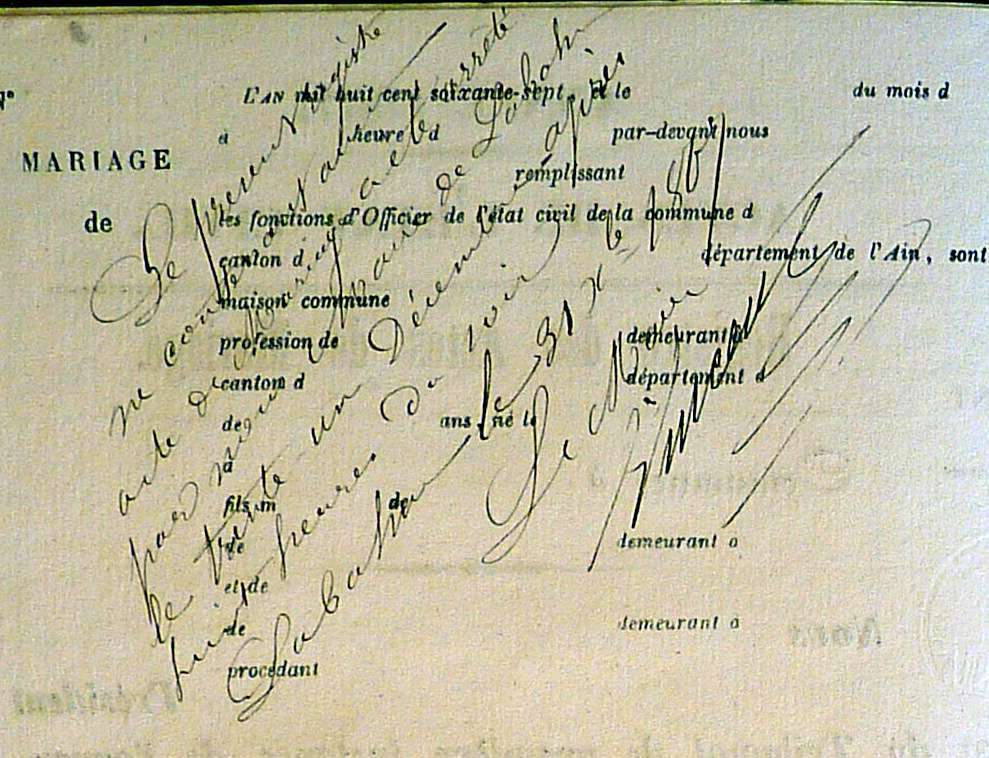 N°
L'AN mil huit cent soixante-sept, et le du mois d
à heure d par-devant nous
MARIAGE
remplissant
de
les fonctions d'Officier de l'état civil de la commune d
canton d département de l'Ain, sont
maison commune
profession de demeurant à
canton d département d
de ans, né le
à
fils m de
de demeurant à
et de
de demeurant à
procédant
Le présent registre
ne contenant aucun
acte de Mariage a été arrêté
par nous Maire de Labah
le trente-un Décembre après
huit heures du soir
Labah le 31 Xe 1867
Le Maire